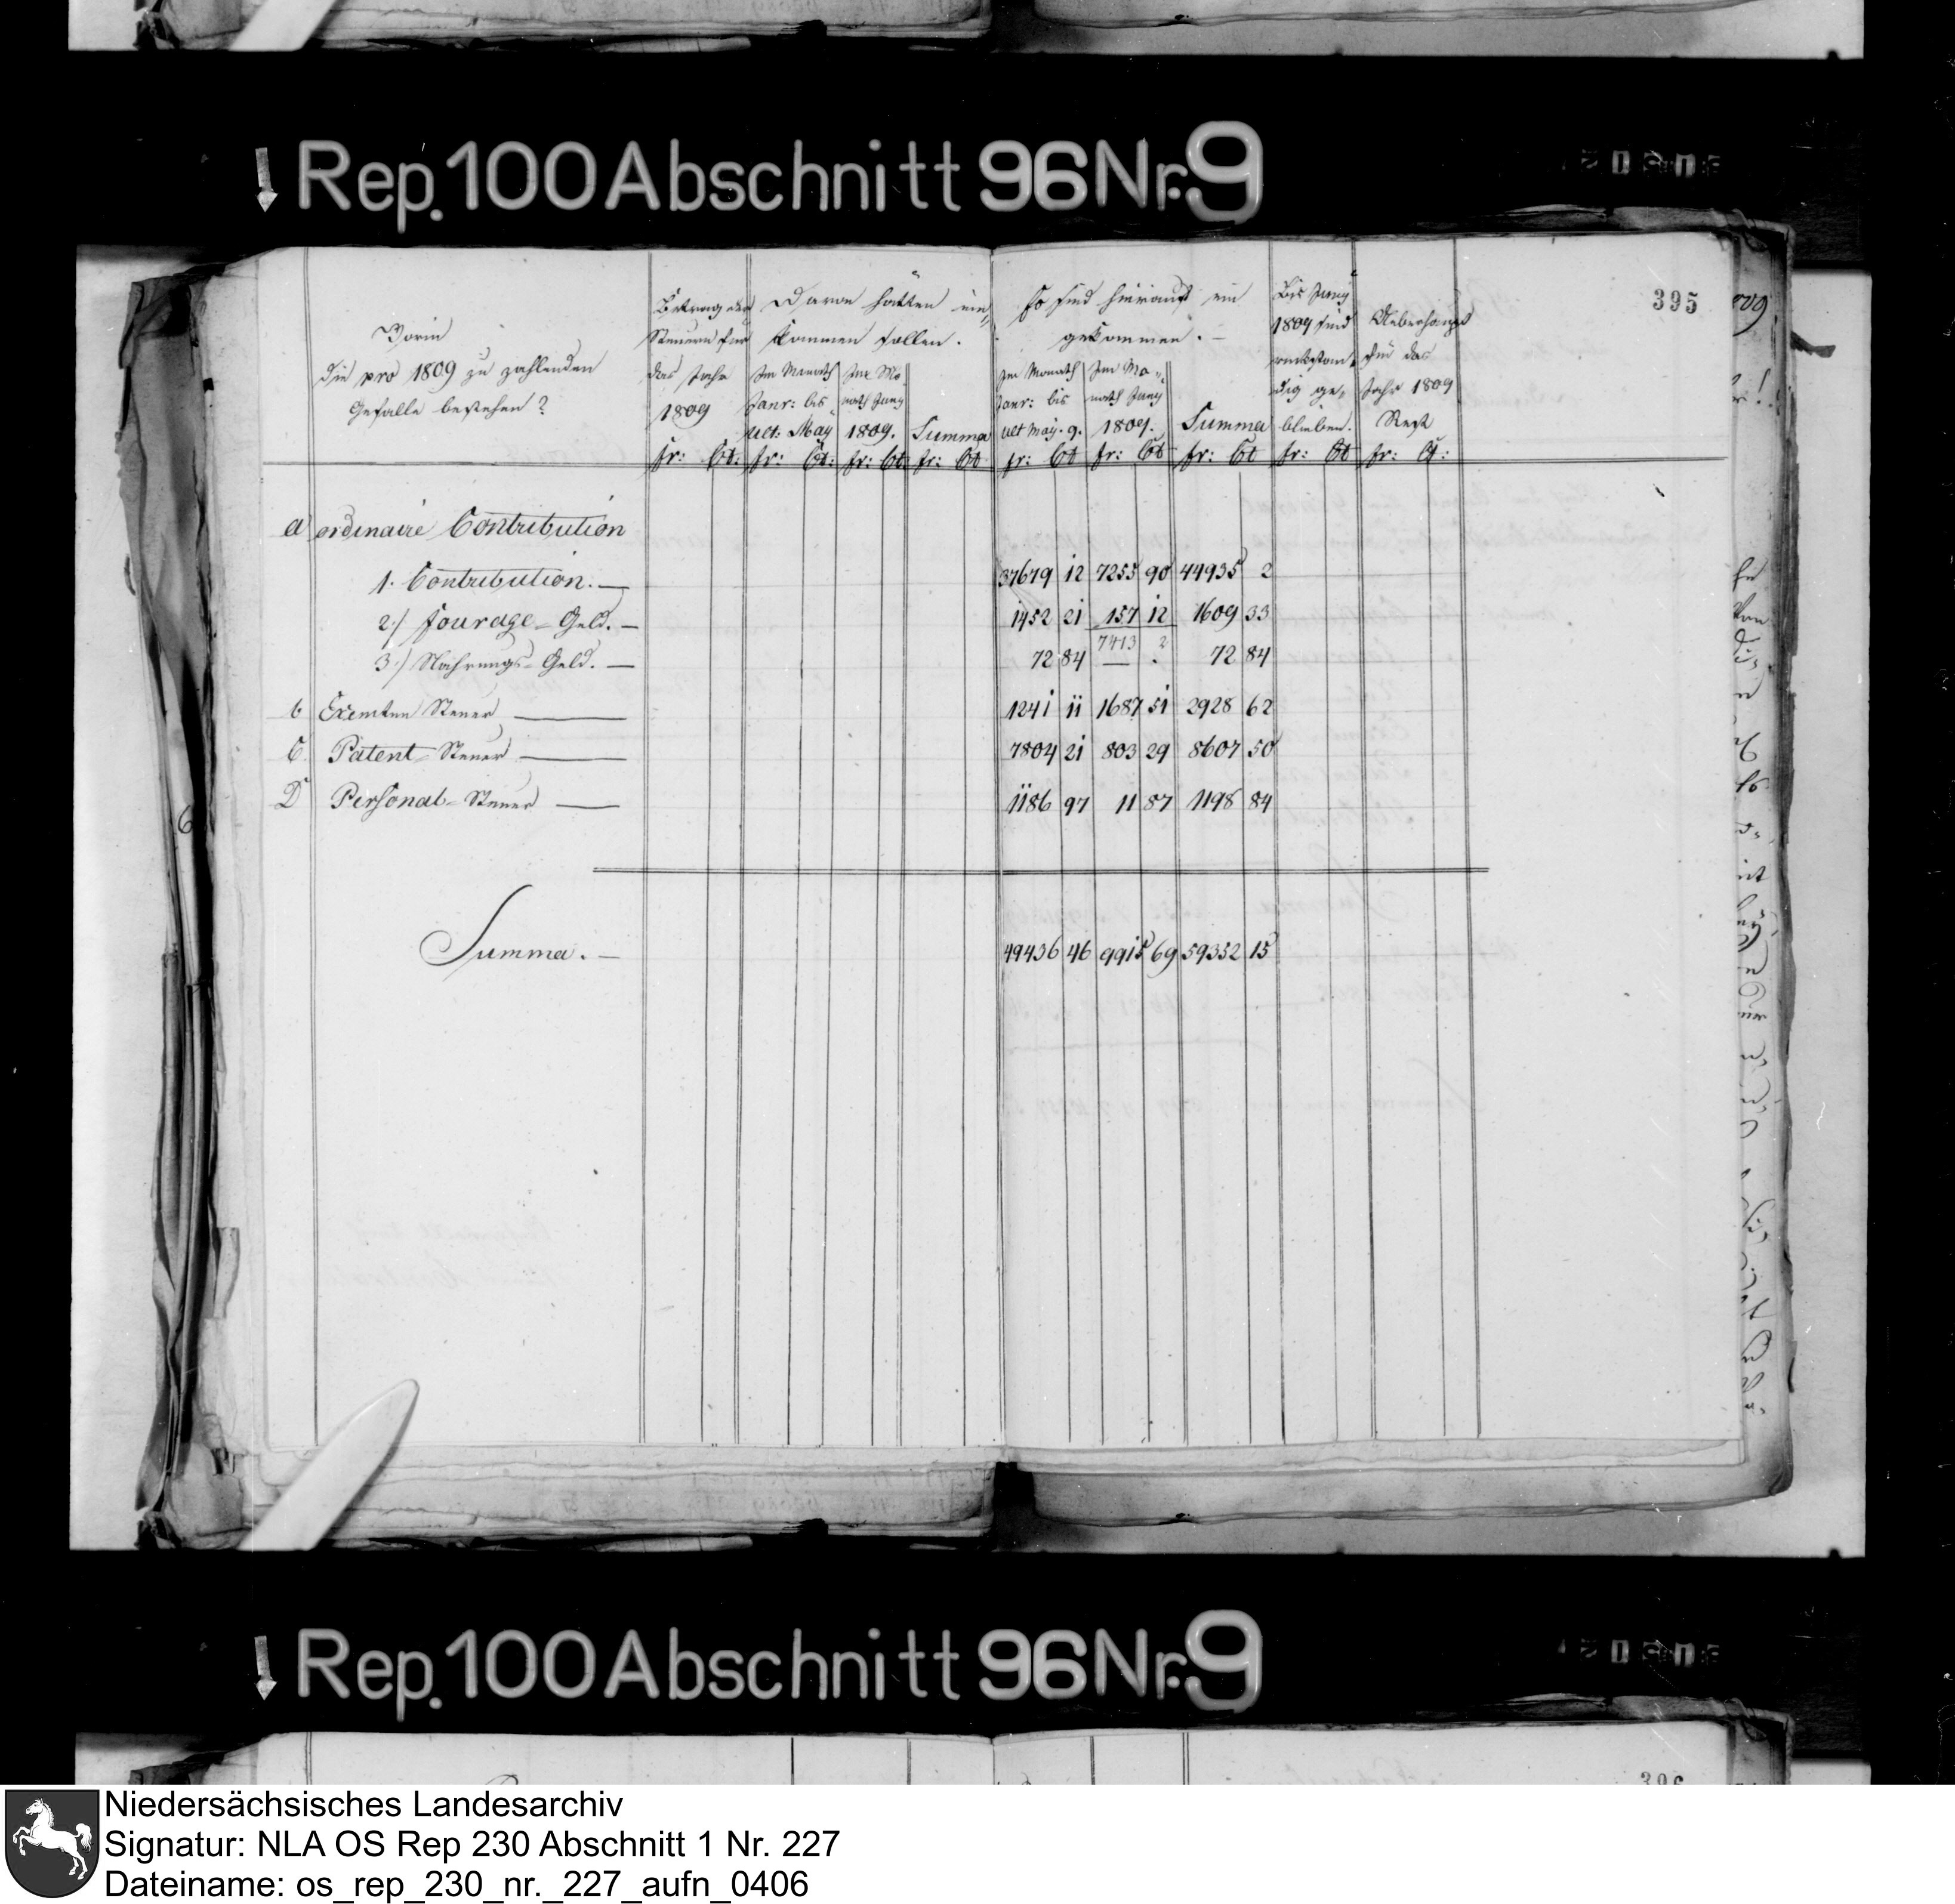 Rep. 100 Abschnitt 96 Nr. 9
395
Worin
die pro 1809 zu zahlenden
Gefälle bestehen?
Betrag der
Steuern für
das Jahr
1809
fr: Ct:
Davon hätten ein-
kommen sollen.
Im Monath
Janr: bis
ult: May
fr: Ct:
Im Mo-
nath Juny
1809.
fr: Ct
Summa
fr: Ct
So sind hierauf ein
gekommen.
Im Monath
Janr: bis
ult May. 9.
fr: Ct
Im Mo-
nath Juny
1809.
fr: Ct
Summa
fr: Ct
Bis Juny
1809 sind
rückstän-
dig ge-
blieben.
fr: Ct
Ueberhaupt
für das
Jahr 1809
Rest
fr: Ct:
a ordinaire Contribution
1. Contribution. — 37679 12 7255 90 44935 2
2.) Fourage-Geld. — 1452 21 157 12 1609 33
7413 2
3.) Nahrungs-Geld. — 72 84 — . 72 84
b Exemten Steuer — 1241 11 1687 51 2928 62
C Patent-Steuer — 7804 21 803 29 8607 50
D Personal-Steuer — 1186 97 11 87 1198 84
Summa. — 49436 46 9915 69 59352 15
Rep. 100 Abschnitt 96 Nr. 9
Niedersächsisches Landesarchiv
Signatur: NLA OS Rep 230 Abschnitt 1 Nr. 227
Dateiname: os_rep_230_nr._227_aufn_0406